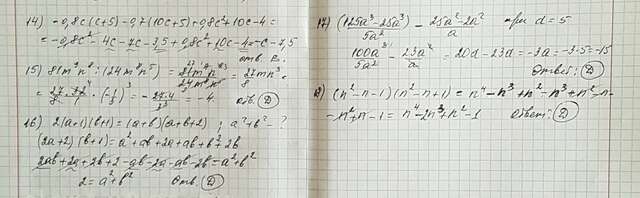 14) -0,8c(c+5)-0,7(10c+5)+0,8c²+10c-4=
=-0,8c²-4c-7c-3,5+0,8c²+10c-4=-c-7,5
отв.
15) 81m⁹n⁸:(24m⁸n⁵)= 27m n³
= = -4. отв. D
16) 2(a+1)(b+1)=(a+b)(a+b+2) ; a²+b²-?
(2a+2)(b+1)=a²+ab+2a+ab+b²+2b
2ab+2a+2b+2-ab-2a-ab-2b=a²+b²
2=a²+b² Отв. D
17) (125a³-25a³)/5a² - (25a²-2a²)/a при a=5
100a³/5a² - 23a²/a = 20a-23a=-3a=-3·5=-15
Ответ: D
(n²-n-1)(n²-n+1)=n⁴-n³+n²-n³+n²-n-
-n²+n-1=n⁴-2n³+n²-1 Ответ: D